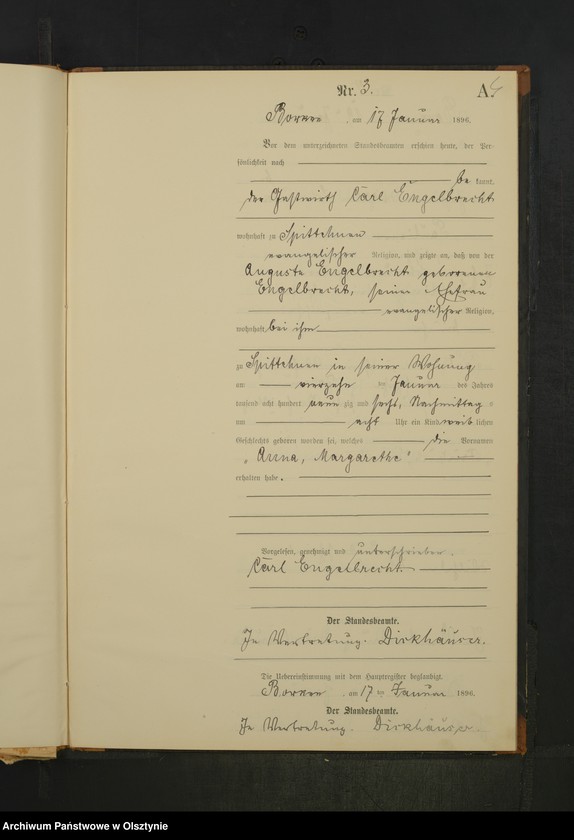 Nr. 3.
A.
Borken am 17 Januar 1896.
Vor dem unterzeichneten Standesbeamten erschien heute, der Per-
sönlichkeit nach
be kannt,
der Gastwirth Carl Engelbrecht
wohnhaft zu Spittehnen
evangelischer Religion, und zeigte an, daß von der
Auguste Engelbrecht geborenen
Engelbrecht, seiner Ehefrau
evangelischer Religion,
wohnhaft bei ihm
zu Spittehnen in seiner Wohnung
am vierzehn ten Januar des Jahres
tausend acht hundert neun zig und sechs, Nachmittag s
um acht Uhr ein Kind weib lichen
Geschlechts geboren worden sei, welches die Vornamen
„Anna, Margarethe"
erhalten habe.
Vorgelesen, genehmigt und unterschrieben.
Carl Engelbrecht
Der Standesbeamte.
In Vertretung. Dirkhäuser.
Die Uebereinstimmung mit dem Hauptregister beglaubigt.
Borken am 17 ten Januar 1896.
Der Standesbeamte.
In Vertretung. Dirkhäuser
Archiwum Państwowe w Olsztynie